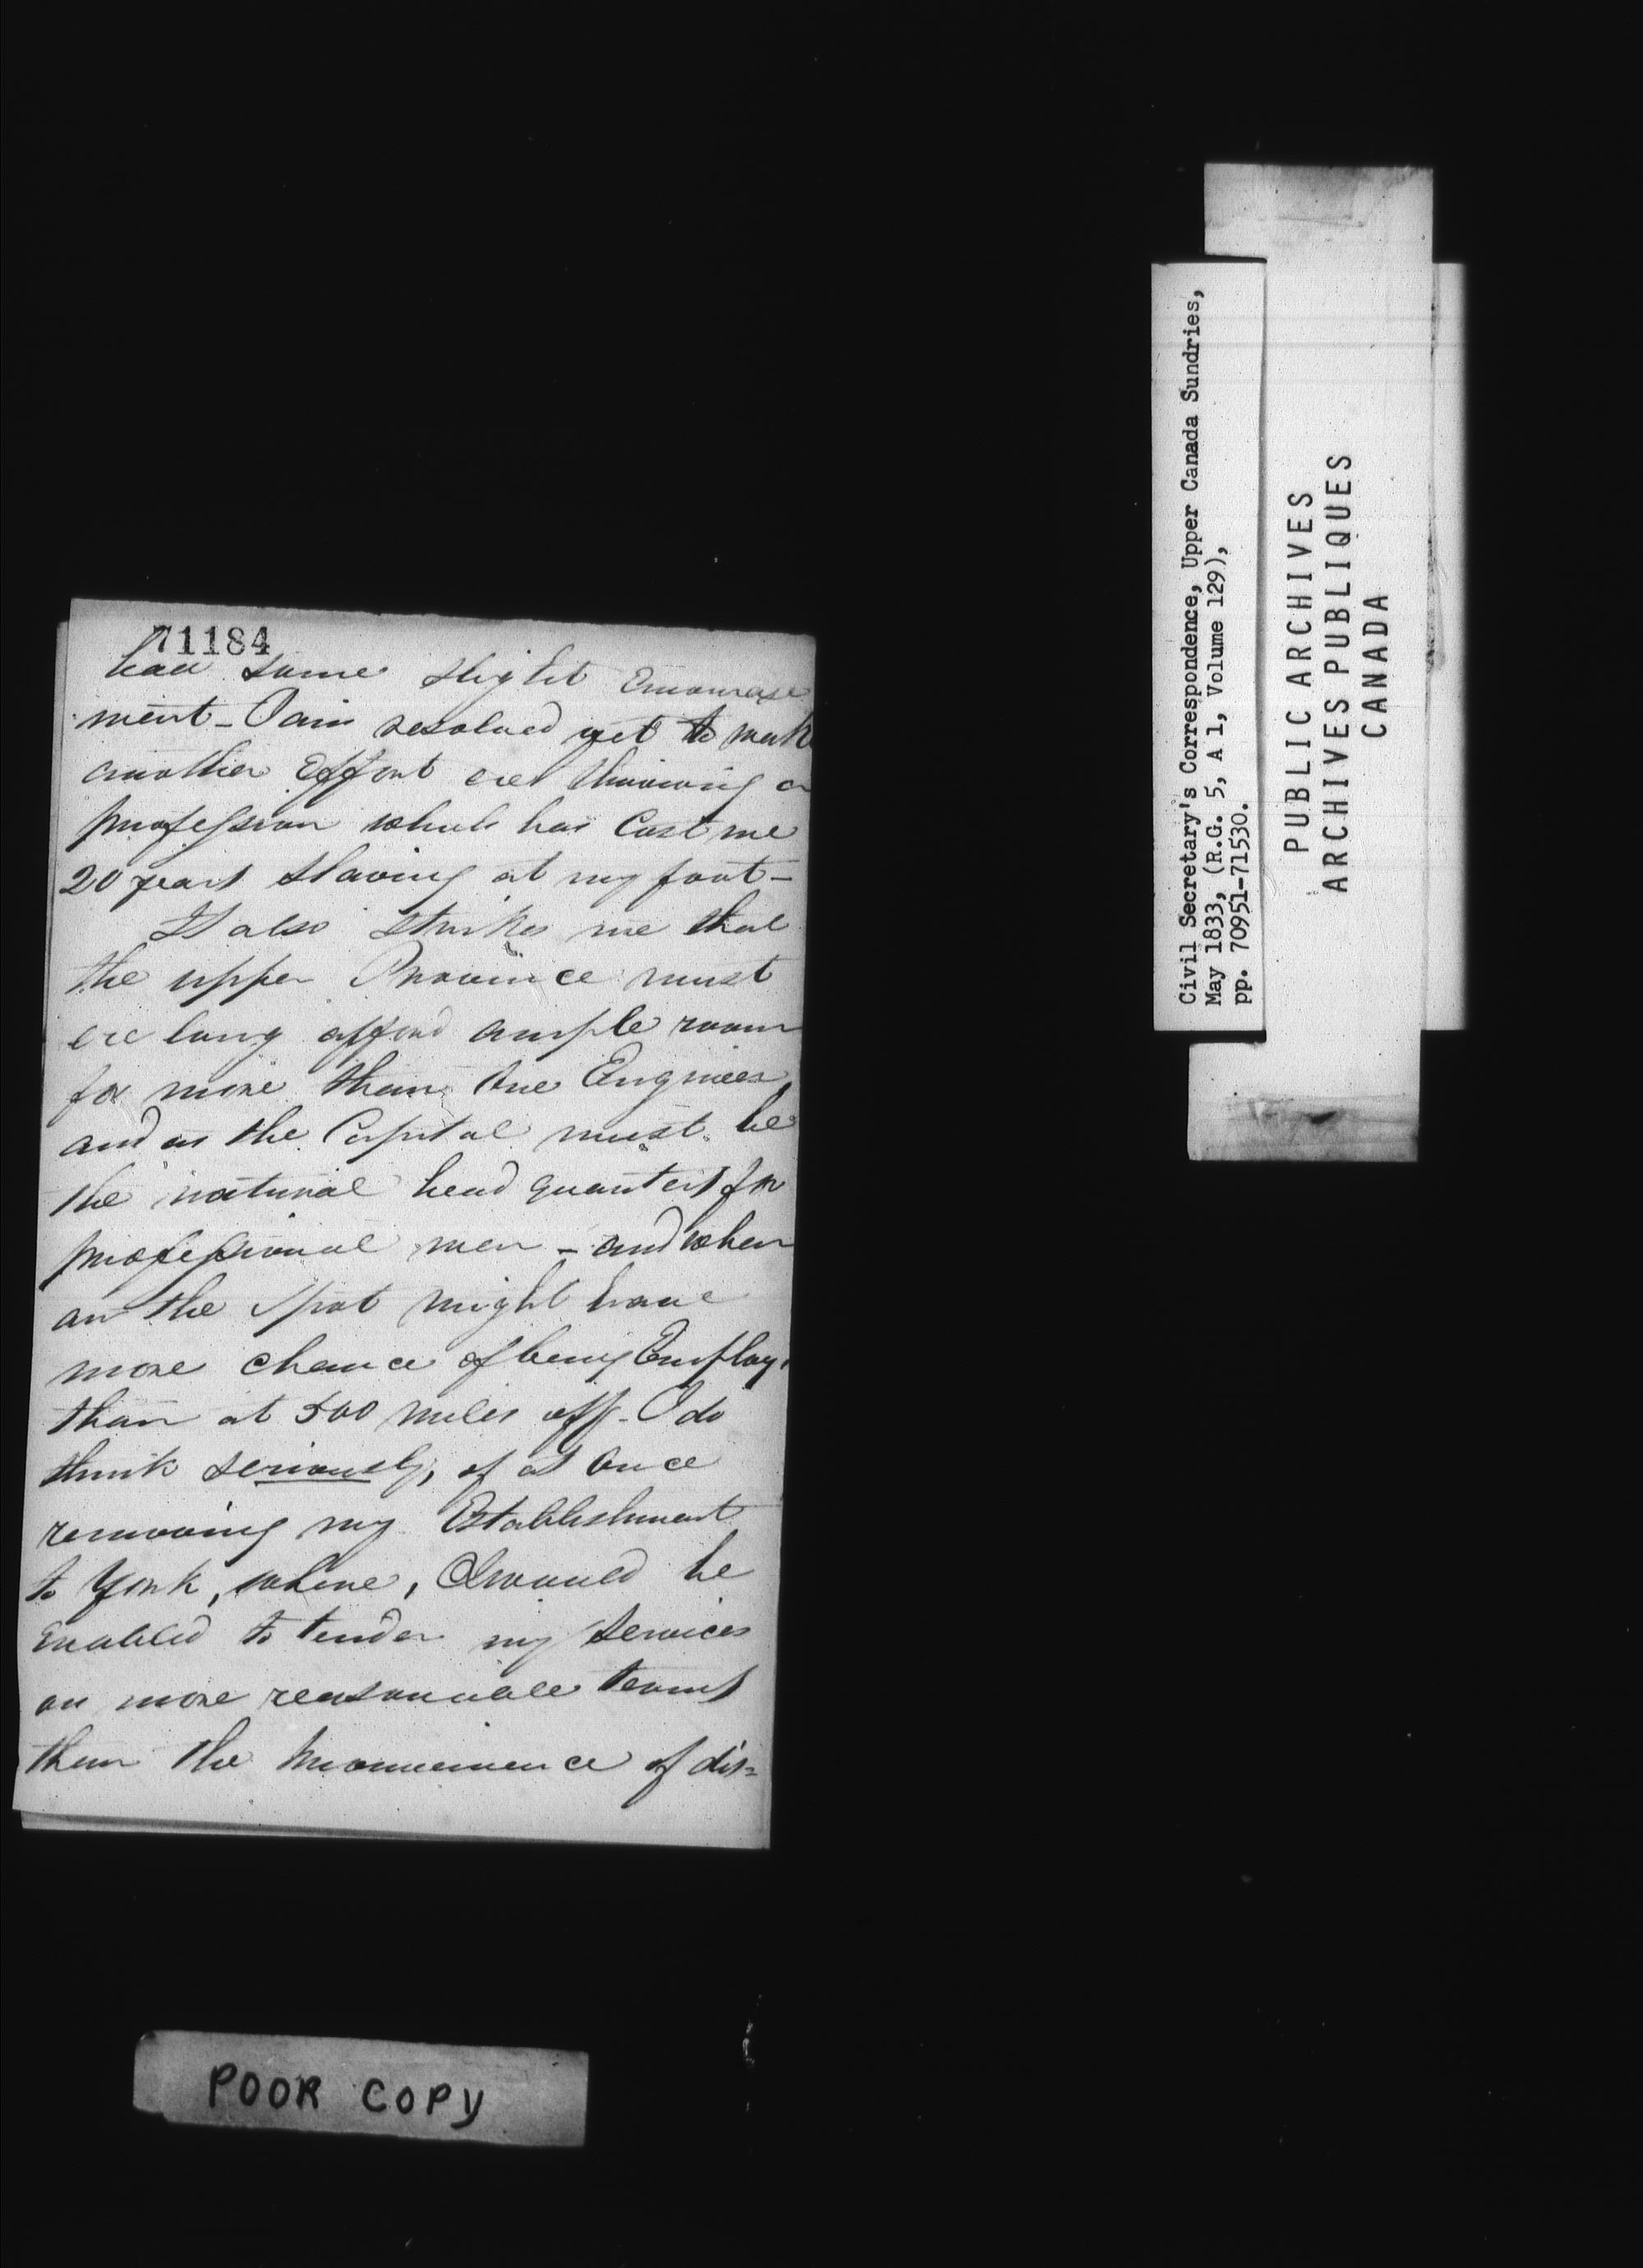 71184
had some slight Encourage
ment - I am resolved yet to make
another Effort ere throwing a
profession which has Cost me
20 years slaving at my foot -
It also strikes me that
the upper Province must
ere long afford ample room
for more than One Engineer
and as the Capital must be
the natural head quarters for
professional men - and when
on the spot might have
more chance of being Employ
than at 500 miles off - I do
think seriously, of at Once
removing my Establishment
to York, where, I would be
Enabled to tender my Services
on more reasonable terms
than the inconvenience of dis=
Civil Secretary's Correspondence, Upper Canada Sundries,
May 1833, (R.G. 5, A 1, Volume 129),
pp. 70951-71530.
PUBLIC ARCHIVES
ARCHIVES PUBLIQUES
CANADA
POOR COPY